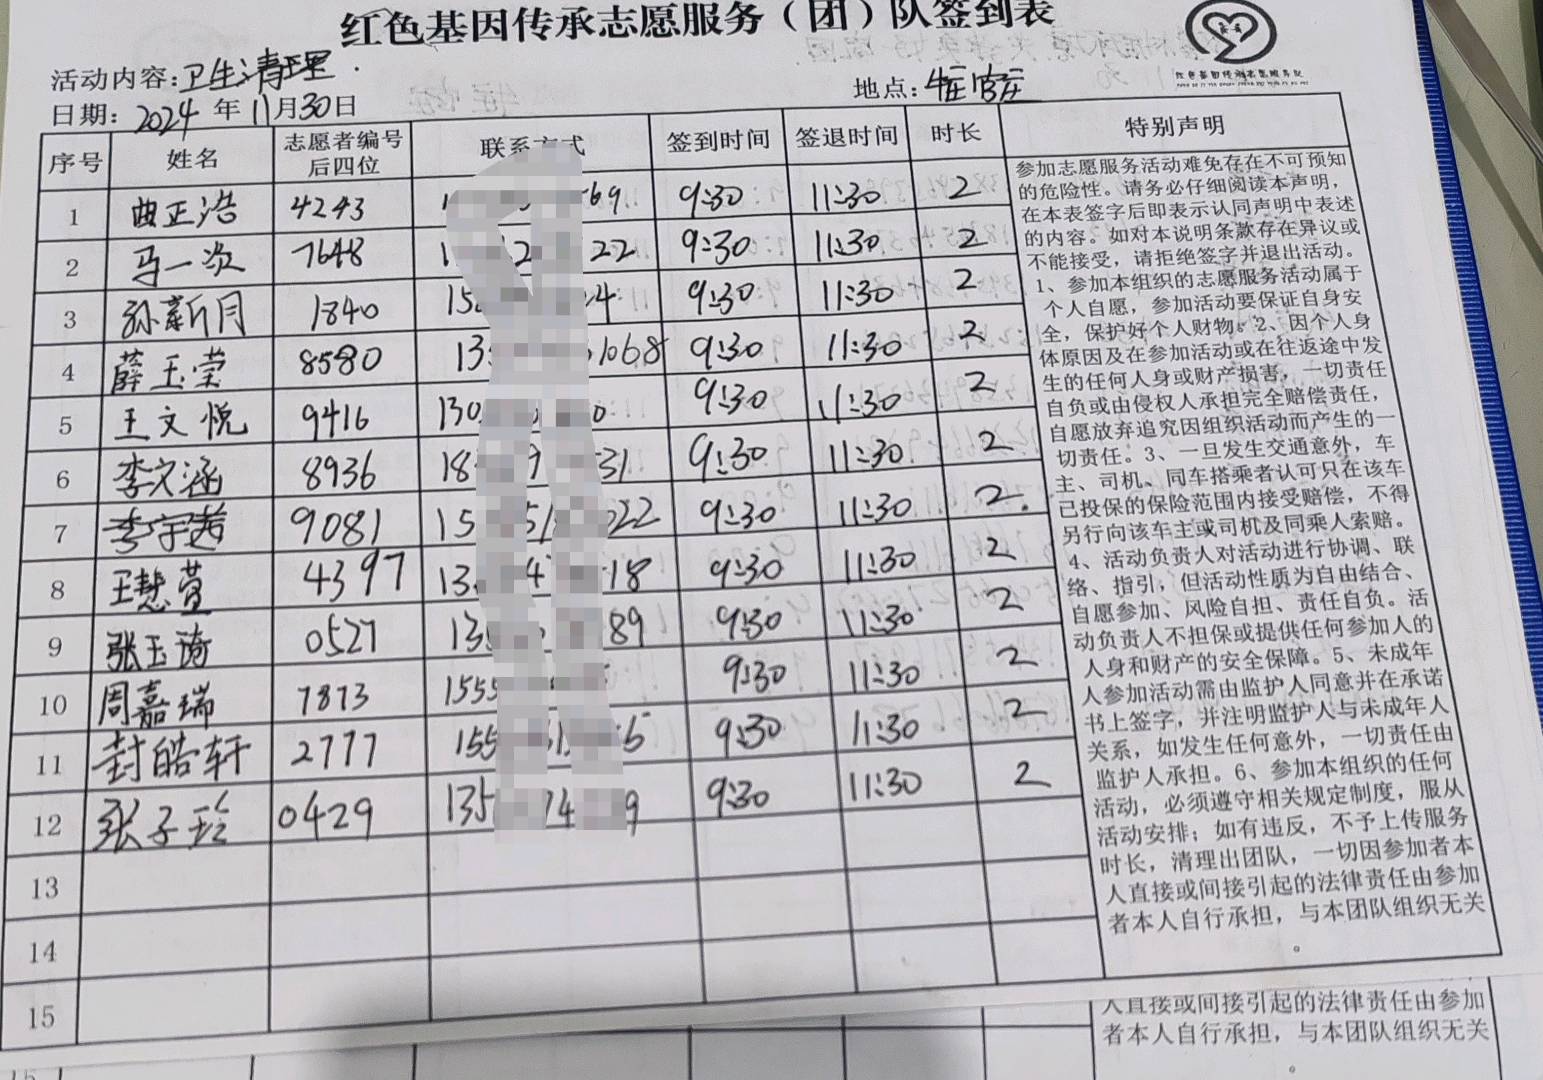 红色基因传承志愿服务（团）队签到表
活动内容：卫生清理
日期：2024年11月30日 地点：
序号 姓名 志愿者编号后四位 联系方式 签到时间 签退时间 时长 特别声明
1 曲正浩 4243 69 9:30 11:30 2
2 马一次 7648 22 9:30 11:30 2
3 孙新月 1840 9:30 11:30 2
4 薛玉莹 8580 13 1068 9:30 11:30 2
5 王文悦 9416 130 0 9:30 11:30 2
6 李文涵 8936 18 9 31 9:30 11:30 2
7 李宇茜 9081 15 022 9:30 11:30 2
8 王慧萱 4397 13 4 18 9:30 11:30 2
9 张玉琦 0527 13 89 9:30 11:30 2
10 周嘉瑞 7873 1555 9:30 11:30 2
11 封皓轩 2777 155 5 9:30 11:30 2
12 张子玲 0429 135 4 9 9:30 11:30 2
13
14
15
参加志愿服务活动难免存在不可预知
的危险性。请务必仔细阅读本声明，
在本表签字后即表示认同声明中表述
的内容。如对本说明条款存在异议或
不能接受，请拒绝签字并退出活动。
1、参加本组织的志愿服务活动属于
个人自愿，参加活动要保证自身安
全，保护好个人财物。2、因个人身
体原因及在参加活动或在往返途中发
生的任何人身或财产损害，一切责任
自负或由侵权人承担完全赔偿责任，
自愿放弃追究因组织活动而产生的一
切责任。3、一旦发生交通意外，车
主、司机、同车搭乘者认可只在该车
已投保的保险范围内接受赔偿，不得
另行向该车主或司机及同乘人索赔。
4、活动负责人对活动进行协调、联
络、指引，但活动性质为自由结合、
自愿参加、风险自担、责任自负。活
动负责人不担保或提供任何参加人的
人身和财产的安全保障。5、未成年
人参加活动需由监护人同意并在承诺
书上签字，并注明监护人与未成年人
关系，如发生任何意外，一切责任由
监护人承担。6、参加本组织的任何
活动，必须遵守相关规定制度，服从
活动安排；如有违反，不予上传服务
时长，清理出团队，一切因参加者本
人直接或间接引起的法律责任由参加
者本人自行承担，与本团队组织无关
。
人直接或间接引起的法律责任由参加
者本人自行承担，与本团队组织无关
。